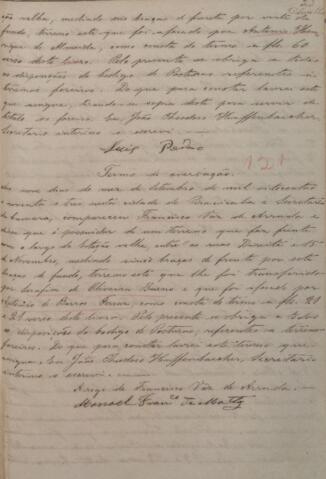 ção velha, medindo seis braças de frente por vinte de
fundo, terreno este que foi aforado por Antonio Hen
rique de Almeida, como consta do termo a fls 60
verso deste livro. Pelo presente se obriga a todas
as disposições do Codigo de Posturas referentes a
terrenos foreiros. Do que para constar lavrei este
que assigna, dando-se copia deste para servir de
titulo ao foreiro. Eu, João Theodoro
Secretario interino o escrevi.
Luis Pedro
121
Termo de
Aos nove dias do mez de Setembro de mil oitocentos
e noventa e tres nesta cidade de Piracicaba e Secretaria
da Camara, compareceu Francisco Vaz de Arruda e
disse que é possuidor de um terreno que faz frente
com o largo da Estação velha, entre as ruas Direita e 15
de Novembro, medindo braças de frente por sete
braças de fundo, terreno este que lhe foi transferido
por Serafim de Oliveira Bueno e que foi aforado por
de Barros Ferraz, como consta do termo a fls. 21
e 21 verso deste livro. Pelo presente se obriga a todas
as disposições do Codigo de Posturas, referentes a terrenos
foreiros. Do que para constar lavrei este termo que
assigna. Eu, João Theodoro Secretario
interino o escrevi.
A rogo de Francisco Vaz de Arruda.
Manoel Franco de Mattos